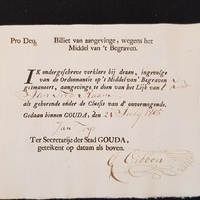 Pro Deo.
Billiet van aangevinge, wegens het
Middel van 't Begraven.
IK ondergeschreve verklare bij dezen, ingevolge
van de Ordonnantie op 't Middel van 't Begraven
geëmaneert, aangevinge te doen van het Lijk van
als gehorende onder de Classe van d' onvermogende.
Gedaan binnen GOUDA, den 21 July
Jan
Ter Secretarije der Stad GOUDA,
geteikent op datum als boven.